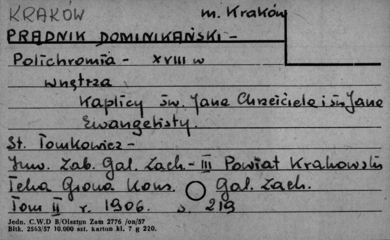 KRAKÓW
m. Kraków
PRĄDNIK DOMINIKAŃSKI –
Polichromia – XVIII w
wnętrza
Kaplicy św. Jana Chrzciciela i św Jana
Ewangelisty.
St. Tomkowicz –
Inw. Zab. Gal. Zach. – III Powiat Krakowski
Teka Grona Kons. Gal. Zach.
Tom II r. 1906. s. 219
Jedn. C.W.D B/Olsztyn Zam 2776 /on/57
Bltk. 2563/57 10.000 szt. karton kl. 7 g 220.